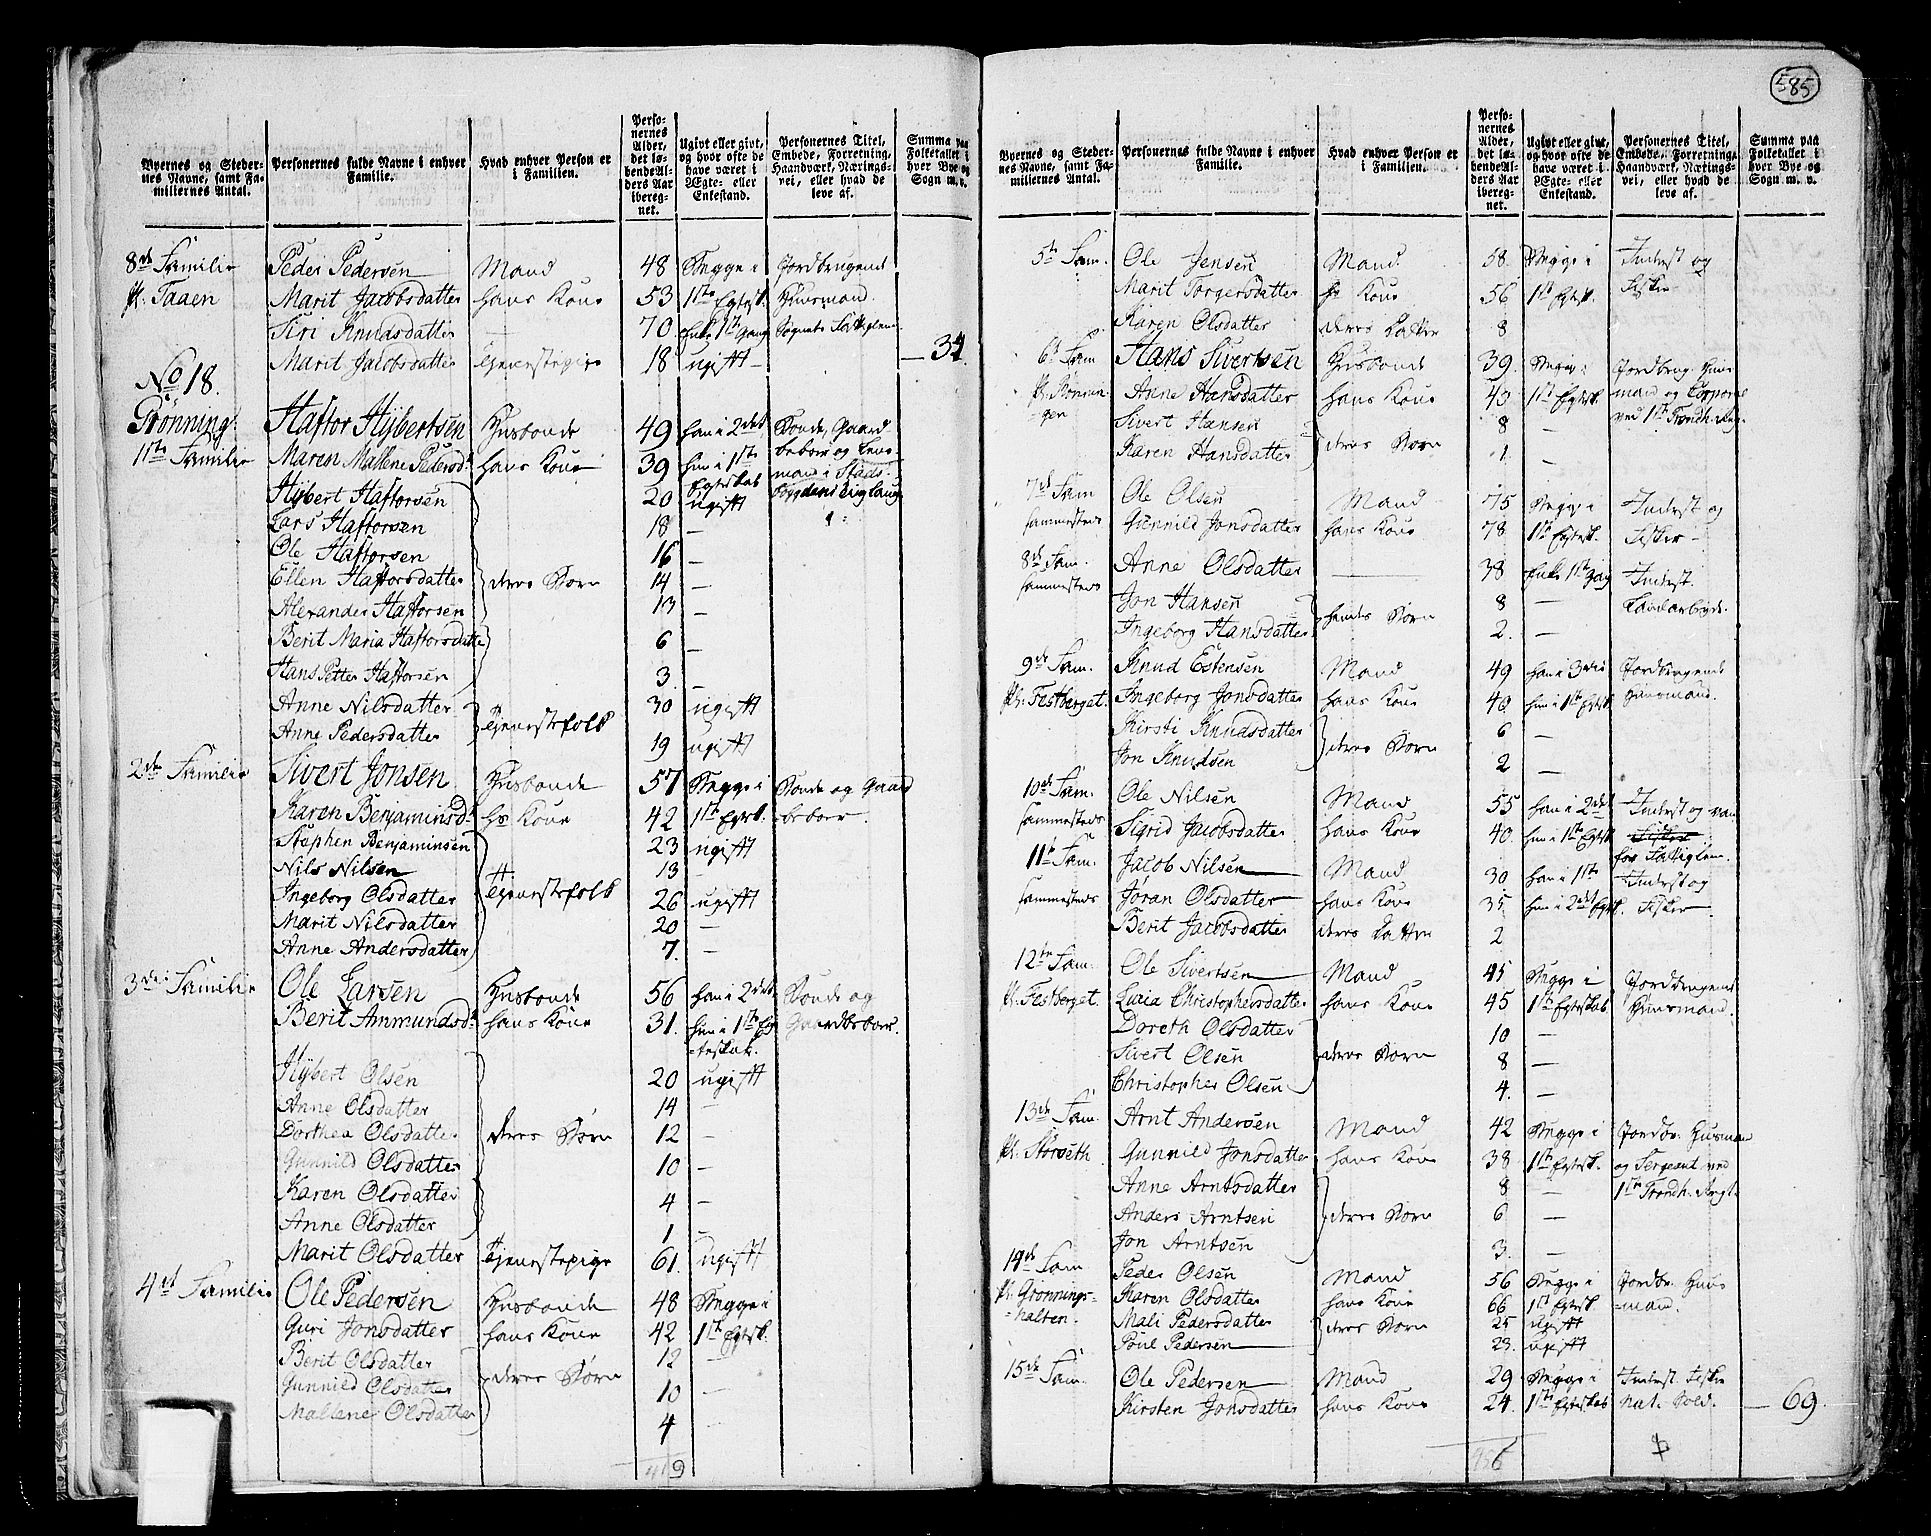 585
Byernes og Steder-nes Navne, samt Fa-miliernes Antal. | Personernes fulde Navne i enhver Familie. | Hvad enhver Person er i Familien. | Perso-nernes Alder, det lø-bende Al-ders Aar iberegnet. | Ugivt eller givt, og hvor ofte de have været i Ægte- eller Enkestand. | Personernes Titel, Embede, Forretning, Haandværk, Nærings-vei, eller hvad de leve af. | Summa paa Folketallet i hver Bye og Sogn m. v.
8de Familie | Peder Pedersen | Mand | 48 | Begge i | Jordbrugende
Pl. Taaen | Marit Jacobsdatter | hans Kone | 53 | 1ste Egtesk. | Huusmand.
Siri Knudsdatter | — | 70. | Enke 1ste Gang | Sognets Fattiglem
Marit Jacobsdatter | Tjenestepige | 18 | ugift | — | 34
No 18.
Grønning:
1ste Familie | Haftor Hybertsen | Husbonde | 49 | han i 2det | Bonde, Gaard
Maren Mallene Pedersd. | hans Kone | 39 | hun i 1ste Egteskab | beboer og Lens-mand i Stads-bøygdens Tinglaug
Hybert Haftorsen | 20 | ugift
Lars Haftorsen | 18 | —
Ole Haftorsen | 16 | —
Ellen Haftorsdatter | deres Børn | 14 | —
Alexander Haftorsen | 13 | —
Berit Maria Haftorsdatter | 6 | —
Hans Petter Haftorsen | 3 | —
Anne Nilsdatter | Tjenestefolk | 30 | ugift
Anne Pedersdatter | 19 | ugift
2den Familie | Sivert Jonsen | Husbonde | 57 | Begge i | Bonde og Gaard
Karen Benjaminsd. | Hs Kone | 42 | 1ste Egtesk. | beboer.
Stephen Benjaminsen | 23 | ugift
Nils Nilsen | 13 | —
Ingeborg Olsdatter | Tjenestefolk | 26 | ugift
Marit Nilsdatter | 20 | —
Anne Andersdatter | 7. | —
3die Familie | Ole Larsen | Husbonde | 56 | han i 2det | Bonde og
Berit Ammundsd. | hans Kone | 31. | hun i 1ste Eg-teskab. | Gaardbeboer.
Hybert Olsen | 20 | ugift
Anne Olsdatter | 14 | —
Dorthea Olsdatter | deres Børn | 12 | —
Gunnild Olsdatter | 10 | —
Karen Olsdatter | 4 | —
Anne Olsdatter | 1 | —
Marit Olsdatter | Tjenestepige | 61. | ugift
4de Familie | Ole Pedersen | Husbonde | 48 | Begge i
Guri Jonsdatter | hans Kone | 42 | 1ste Egtesk.
Berit Olsdatter | 12 | —
Gunnild Olsdatter | deres Børn | 10 | —
Mallene Olsdatter | 4
Byernes og Steder-nes Navne, samt Fa-miliernes Antal. | Personernes fulde Navne i enhver Familie. | Hvad enhver Person er i Familien. | Perso-nernes Alder, det lø-bende Al-ders Aar iberegnet. | Ugivt eller givt, og hvor ofte de have været i Ægte- eller Enkestand. | Personernes Titel, Embede, Forretning, Haandværk, Nærings-vei, eller hvad de leve af. | Summa paa Folketallet i hver Bye og Sogn m. v.
5te Fam. | Ole Jensen | Mand | 58. | Begge i | Inderst og
Marit Torgersdatter | hs Kone | 56 | 1st Egtesk. | Fisker
Karen Olsdatter | deres Datter | 8
6te Fam | Hans Sivertsen | Husbonde | 39. | Begge i | Jordbrug. Huus
Pl. Grønningen | Anne Hansdatter | hans Kone | 43 | 1ste Egtesk. | mand og Corporal
Sivert Hansen | 8 | — | ved 1ste Trondh. Reg.
Karen Hansdatter | deres Børn | 1 | —
7de Fam | Ole Olsen | Mand | 75 | Begge i | Inderst og
sammesteds | Gunnild Jonsdatter | hans Kone | 78 | 1ste Egtesk. | Fisker
8de Fam. | Anne Olsdatter | — | 38 | Enke 1ste Gang | Inderst.
sammesteds | Jon Hansen | 8 | —
Ingeborg Hansdatter | hendes Børn | 2. | —
9de Fam. | Knud Estensen | Mand | 49 | han i 3die | Jordbrugende
Pl. Festberget. | Ingeborg Jonsdatter | hans Kone | 40 | hun i 1ste Egtesk | Huusmand.
Kirsti Knudsdatter | deres Børn | 6 | —
Jon Knudsen | 2 | —
10de Fam. | Ole Nilsen | Mand | 55 | han i 2det | Inderst og
sammesteds | Sigrid Jacobsdatter | hans Kone | 40 | hun i 1ste Egtesk | Fattiglem.
11te Fam. | Jacob Nilsen | Mand | 30 | han i 1ste | Inderst og
sammesteds | Jøran Olsdatter | hans Kone | 35 | hun i 2det Egtesk. | Fisker
Berit Jacobsdatter | deres Datter | 2
12te Fam. | Ole Sivertsen | Mand | 45 | Begge i | Jordbrugende
Pl. Festberget. | Lucia Christophersdatter | hans Kone | 45 | 1ste Egteskab | Huusmand.
Doreth Olsdatter | 10 | —
Sivert Olsen | deres Børn | 8 | —
Christopher Olsen | 4. | —
13de Fam | Arnt Andersen | Mand | 42 | Begge i | Jordbr. Husman
Pl. Storseth | Gunnild Jonsdatter | hans Kone | 38 | 1ste Egtesk. | og Sergeant ved
Anne Arntsdatter | 8 | — | 1ste Trondh. Regt.
Anders Arntsen | deres Børn | 6 | —
Jon Arntsen | 3. | —
14de Fam | Peder Olsen | Mand | 56 | Begge i | Jordbr. Huus
Pl. Grønnings- | Karen Olsdatter | hans Kone | 66 | 1ste Egtesk. | =mand.
=halten. | Mali Pedersdatter | deres Børn | 25 | ugift
Poul Pedersen | 23. | ugift
15de Fam. | Ole Pedersen | Mand | 29 | Begge i | Inderst. Fisker
Kirsten Jonsdatter | hans Kone | 24. | 1ste Egteskab | nat. Sold. | 69.